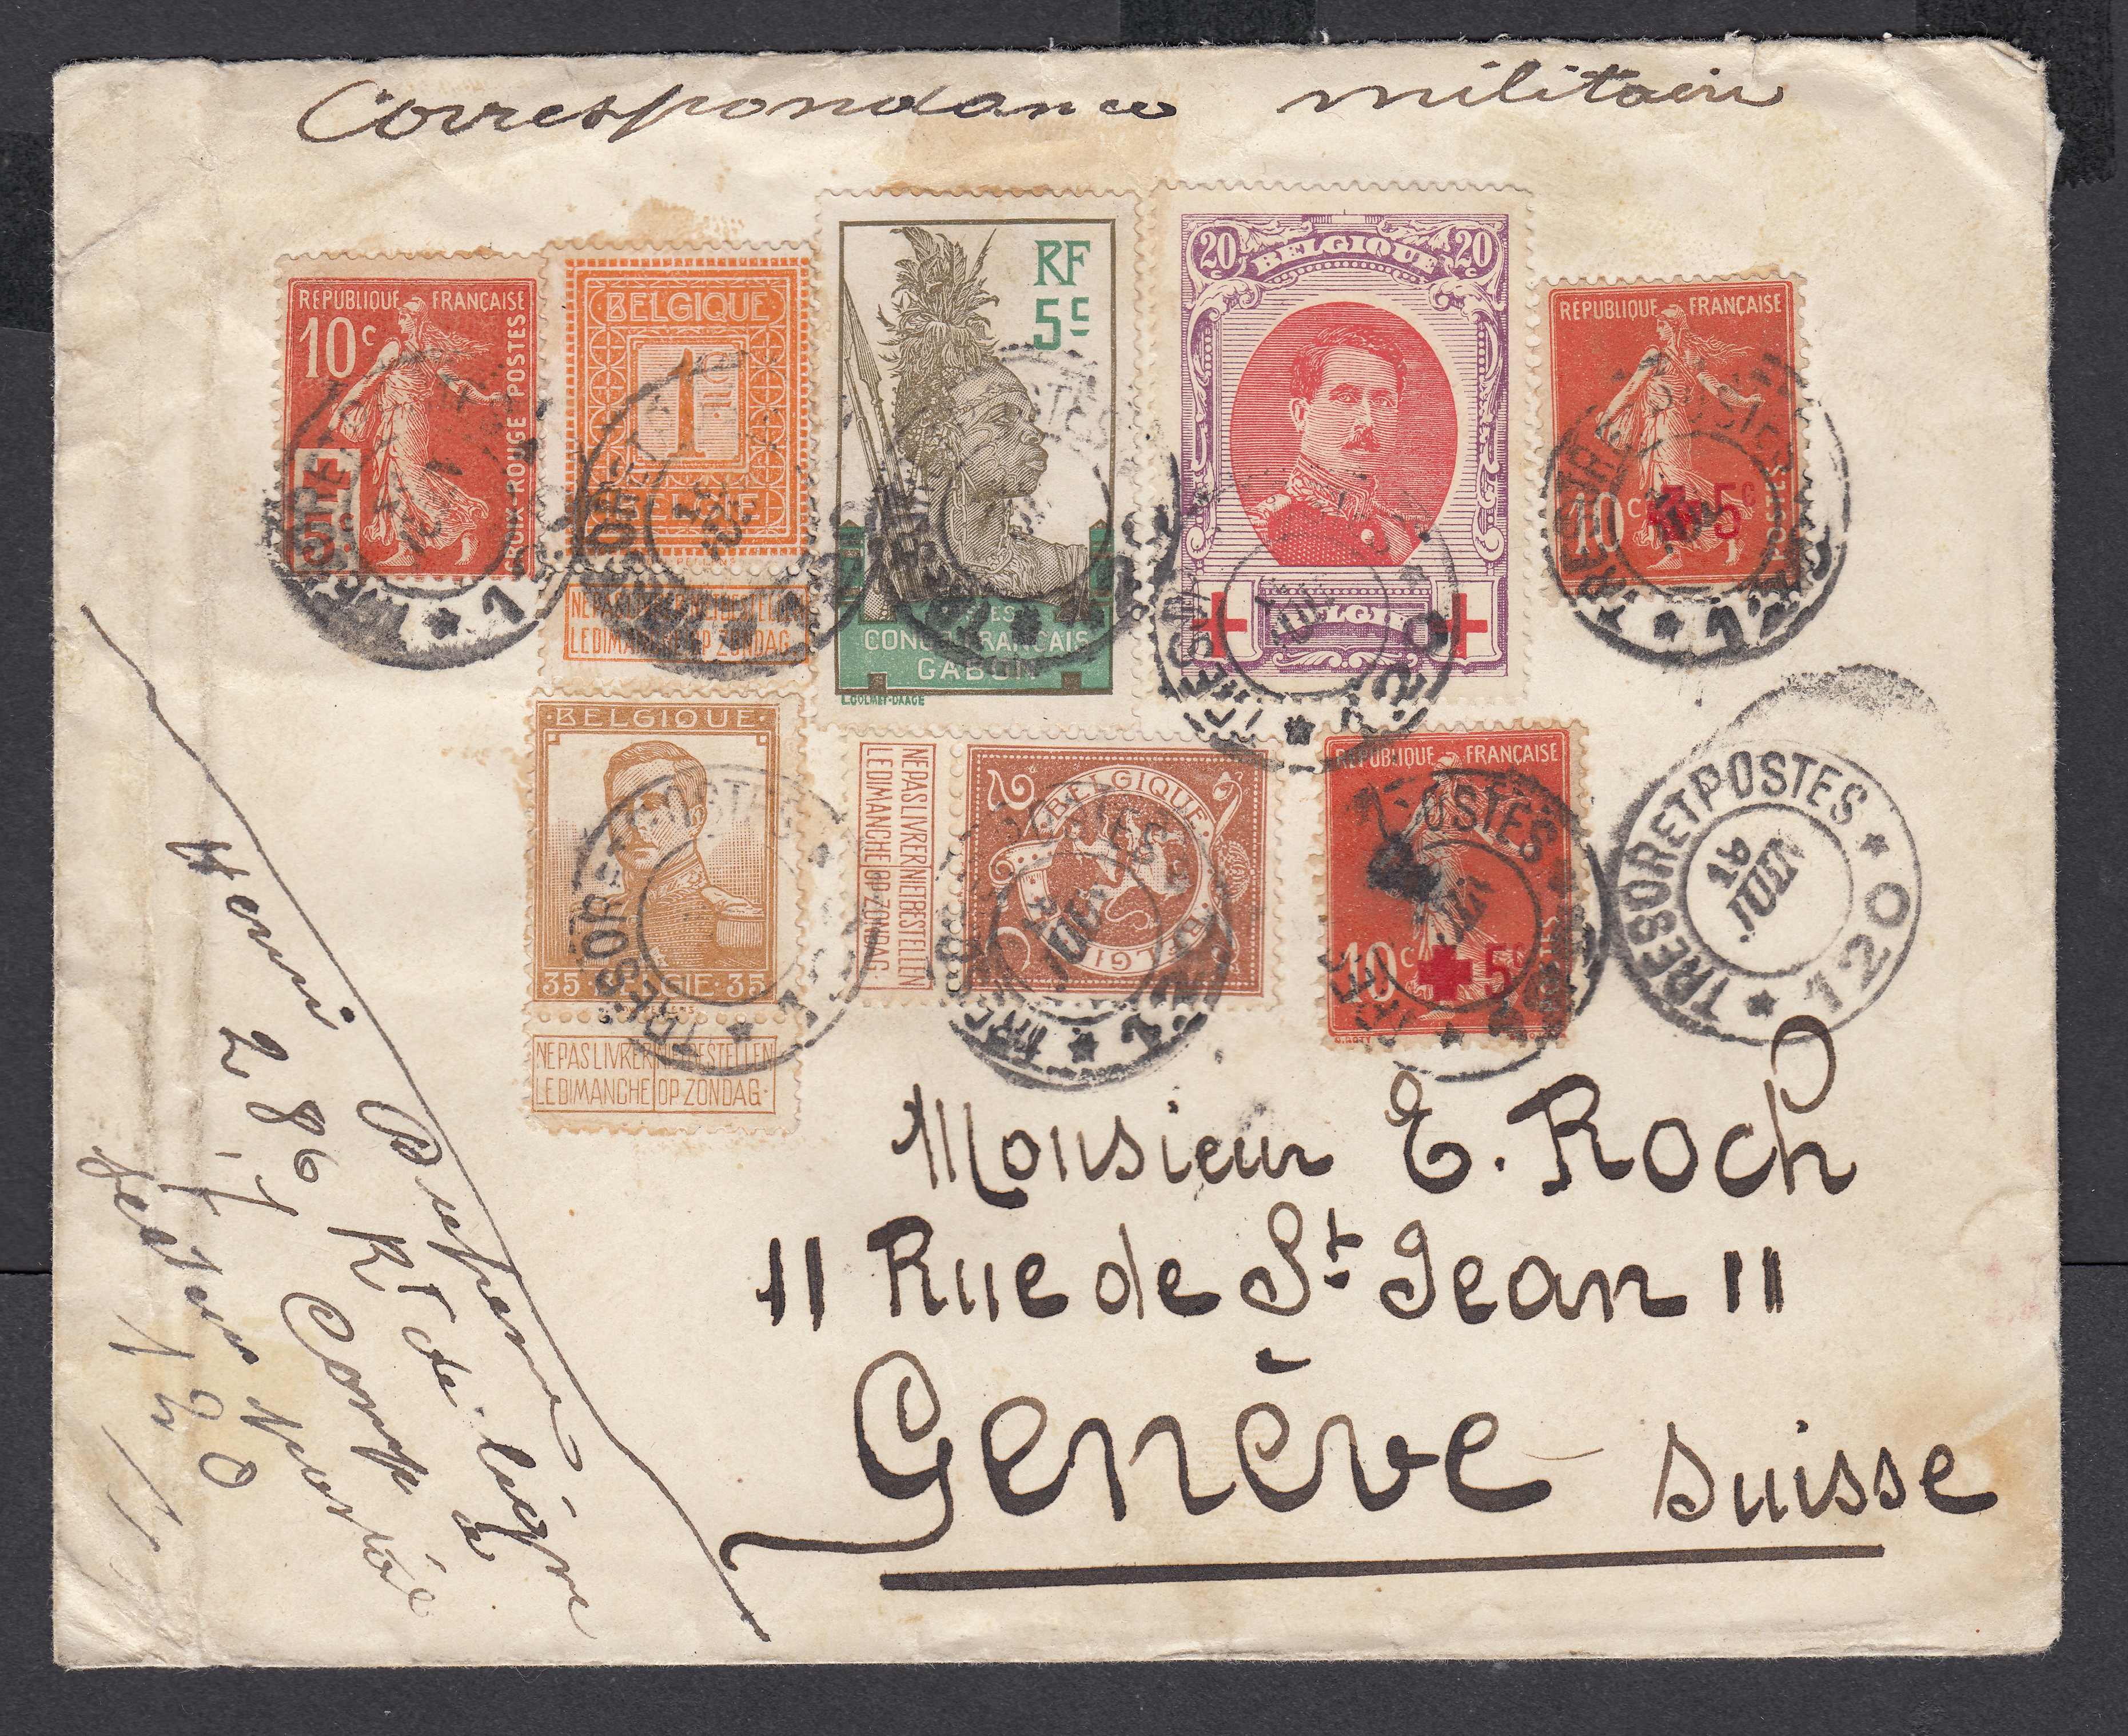 Correspondance militaire
REPUBLIQUE FRANÇAISE
10c
POSTES
CROIX-ROUGE
5c
BELGIQUE
1c
BELGIE
NE PAS LIVRER NIET BESTELLEN
LE DIMANCHE OP ZONDAG
RF
5c
CONGO FRANÇAIS
GABON
L.COLMET-DAAGE
20c BELGIQUE 20c
BELGIE
REPUBLIQUE FRANÇAISE
10c 5c
POSTES
BELGIQUE
35 BELGIE 35
NE PAS LIVRER NIET BESTELLEN
LE DIMANCHE OP ZONDAG
NE PAS LIVRER NIET BESTELLEN
LE DIMANCHE OP ZONDAG
BELGIQUE
BELGIE
2
REPUBLIQUE FRANÇAISE
10c 5c
TRESOR ET POSTES
120
JUIL
Monsieur E. Roch
11 Rue de St Jean 11
Genève Suisse
286 Rt de ligne
Comp
secteur postal
120